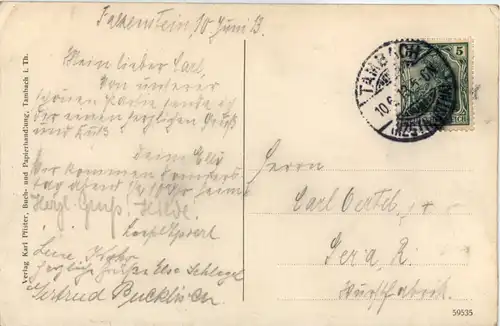 Falkenstein 10 Juni 13.
Mein lieber Carl,
Von unserer
schönen Partie sende ich
dir einen herzlichen Gruß
und Kuß
deine Elli
Wir kommen
abend 1/2 10 Uhr heim
Herzl. Gruß. Hilde.
Herzliche Grüße Else Schlegel
Gertrud
Verlag Karl Pfister, Buch- und Papierhandlung, Tambach i. Th.
TAMBACH
10.6.13
5
Herrn
Carl Oertel
Gera, R.
Wurstfabrik.
59535